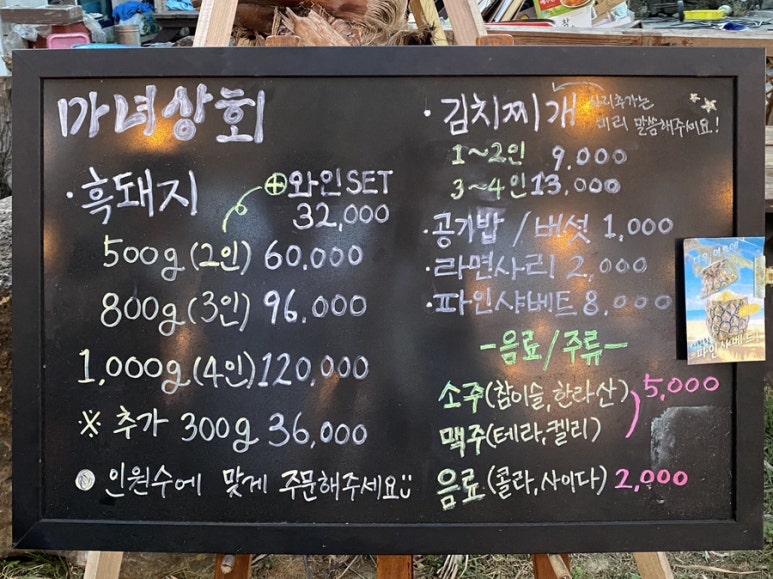 마녀상회
· 흑돼지
⊕와인SET
32,000
500g (2인) 60,000
800g (3인) 96,000
1,000g (4인) 120,000
※ 추가 300g 36,000
● 인원수에 맞게 주문해주세요
· 김치찌개
사리추가는
미리 말씀해주세요!
1~2인 9,000
3~4인 13,000
· 공기밥 / 버섯 1,000
· 라면사리 2,000
· 파인샤베트 8,000
-음료/주류-
소주(참이슬,한라산)
맥주(테라,켈리)
5,000
음료(콜라,사이다) 2,000
파인샤베트!